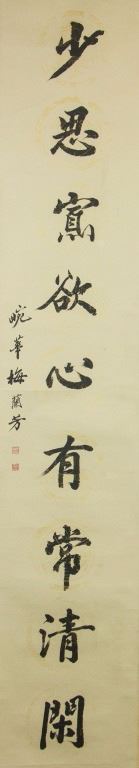 少思寡欲心有常清閑
畹華梅蘭芳